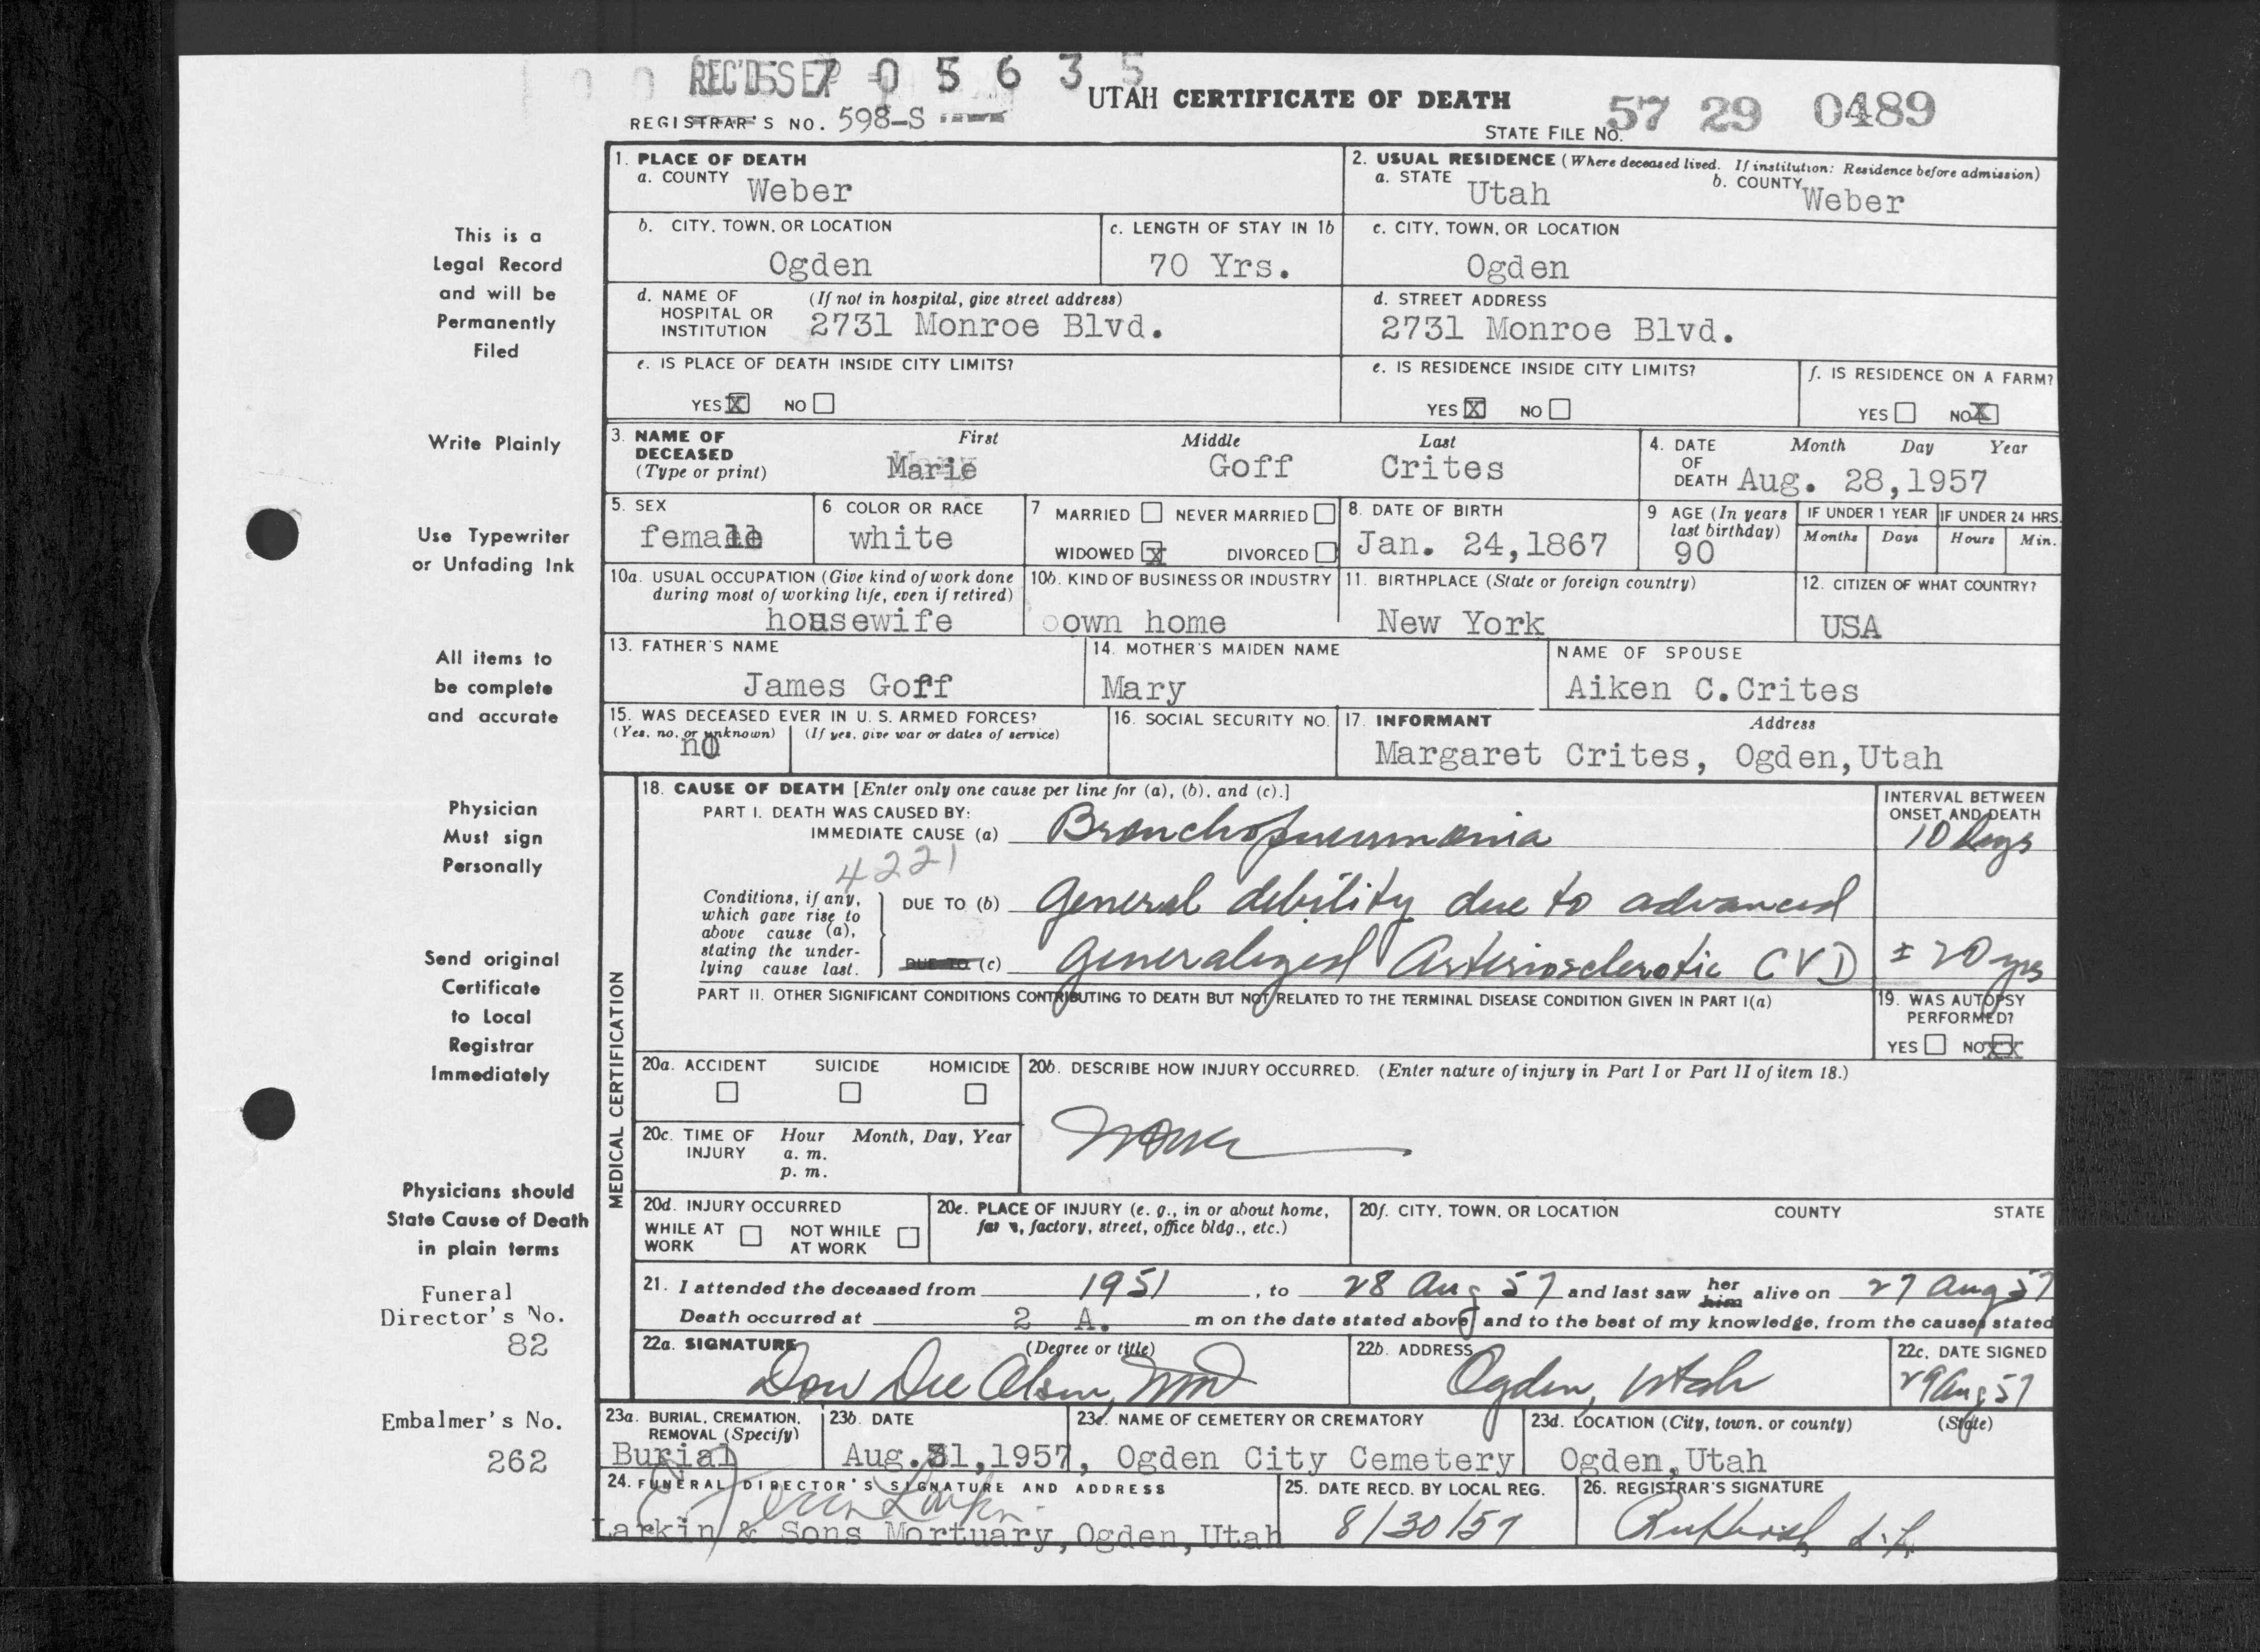 REC'D SEP 7 0 5 6 3 5
UTAH CERTIFICATE OF DEATH
REGISTRAR'S NO. 598-S
STATE FILE NO. 57 29 0489
1. PLACE OF DEATH
a. COUNTY Weber
2. USUAL RESIDENCE (Where deceased lived. If institution: Residence before admission)
a. STATE Utah b. COUNTY Weber
b. CITY, TOWN, OR LOCATION Ogden
c. LENGTH OF STAY IN 1b 70 Yrs.
c. CITY, TOWN, OR LOCATION Ogden
d. NAME OF HOSPITAL OR INSTITUTION (If not in hospital, give street address) 2731 Monroe Blvd.
d. STREET ADDRESS 2731 Monroe Blvd.
e. IS PLACE OF DEATH INSIDE CITY LIMITS?
YES X NO
e. IS RESIDENCE INSIDE CITY LIMITS?
YES X NO
f. IS RESIDENCE ON A FARM?
YES NO X
3. NAME OF DECEASED (Type or print) First Middle Last
Marie Goff Crites
4. DATE OF DEATH Month Day Year
Aug. 28,1957
5. SEX female
6 COLOR OR RACE white
7 MARRIED NEVER MARRIED
WIDOWED X DIVORCED
8. DATE OF BIRTH Jan. 24,1867
9 AGE (In years last birthday) 90
IF UNDER 1 YEAR Months Days
IF UNDER 24 HRS. Hours Min.
10a. USUAL OCCUPATION (Give kind of work done during most of working life, even if retired) housewife
10b. KIND OF BUSINESS OR INDUSTRY own home
11. BIRTHPLACE (State or foreign country) New York
12. CITIZEN OF WHAT COUNTRY? USA
13. FATHER'S NAME James Goff
14. MOTHER'S MAIDEN NAME Mary
NAME OF SPOUSE Aiken C.Crites
15. WAS DECEASED EVER IN U. S. ARMED FORCES?
(Yes, no, or unknown) no (If yes, give war or dates of service)
16. SOCIAL SECURITY NO.
17. INFORMANT Address
Margaret Crites, Ogden,Utah
MEDICAL CERTIFICATION
18. CAUSE OF DEATH [Enter only one cause per line for (a), (b), and (c).]
INTERVAL BETWEEN ONSET AND DEATH
PART I. DEATH WAS CAUSED BY:
IMMEDIATE CAUSE (a) Bronchopneumonia 10 days
4221
Conditions, if any, which gave rise to above cause (a), stating the underlying cause last.
DUE TO (b) General debility due to advanced
DUE TO (c) generalized Arteriosclerotic CVD ± 20 yrs
PART II. OTHER SIGNIFICANT CONDITIONS CONTRIBUTING TO DEATH BUT NOT RELATED TO THE TERMINAL DISEASE CONDITION GIVEN IN PART I(a)
19. WAS AUTOPSY PERFORMED?
YES NO XX
20a. ACCIDENT SUICIDE HOMICIDE
20b. DESCRIBE HOW INJURY OCCURRED. (Enter nature of injury in Part I or Part II of item 18.)
None
20c. TIME OF INJURY Hour Month, Day, Year
a. m.
p. m.
20d. INJURY OCCURRED
WHILE AT WORK NOT WHILE AT WORK
20e. PLACE OF INJURY (e. g., in or about home, farm, factory, street, office bldg., etc.)
20f. CITY, TOWN, OR LOCATION COUNTY STATE
21. I attended the deceased from 1951, to 28 Aug 57 and last saw her him alive on 27 Aug 57
Death occurred at 2 A. m on the date stated above, and to the best of my knowledge, from the causes stated
22a. SIGNATURE (Degree or title) Don Dee Olsen, MD
22b. ADDRESS Ogden, Utah
22c. DATE SIGNED 29 Aug 57
23a. BURIAL, CREMATION, REMOVAL (Specify) Burial
23b. DATE Aug.31,1957,
23c. NAME OF CEMETERY OR CREMATORY Ogden City Cemetery
23d. LOCATION (City, town, or county) (State) Ogden,Utah
24. FUNERAL DIRECTOR'S SIGNATURE AND ADDRESS
Larkin & Sons Mortuary,Ogden,Utah
25. DATE RECD. BY LOCAL REG. 8/30/57
26. REGISTRAR'S SIGNATURE
This is a
Legal Record
and will be
Permanently
Filed
Write Plainly
Use Typewriter
or Unfading Ink
All items to
be complete
and accurate
Physician
Must sign
Personally
Send original
Certificate
to Local
Registrar
Immediately
Physicians should
State Cause of Death
in plain terms
Funeral
Director's No.
82
Embalmer's No.
262